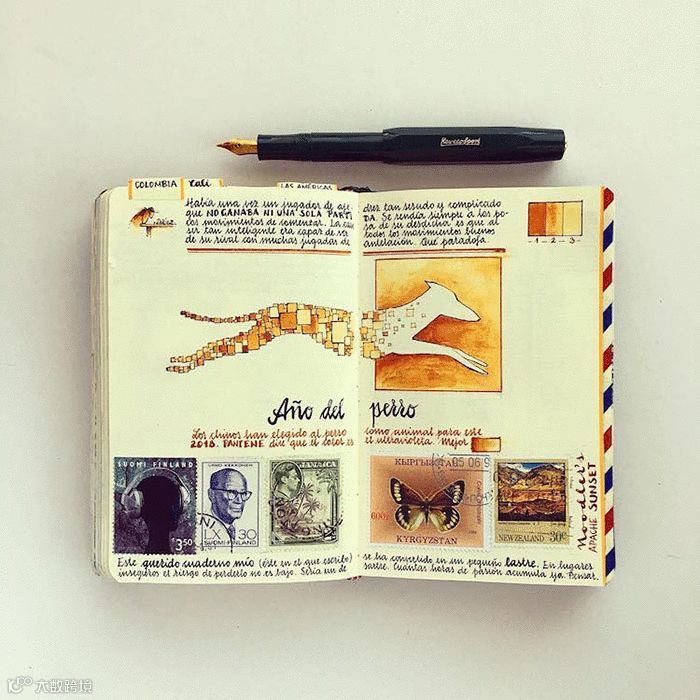 Kaweco Sport
COLOMBIA Cali LAS AMÉRICAS
Había una vez un jugador de aje- drez tan sesudo y complicado
que NO GANABA NI UNA SOLA PARTI DA. Se rendía siempre a los po-
cos movimientos de comenzar. La cau sa de su desdicha es que al
ser tan inteligente era capaz de ver todos los movimientos buenos
de su rival con muchas jugadas de antelación. Qué paradoja.
- 1 - 2 - 3 -
Año del perro
Los chinos han elegido al perro como animal para este
2018. PANTENE dice que el color es el ultravioleta. Mejor
SUOMI FINLAND
3,50
URHO KEKKONEN
30
SUOMI-FINLAND
JAMAICA
КЫРГЫЗСТАН
600
KYRGYZSTAN
05 06 9
NEW ZEALAND 30c
Noodler's
APACHE SUNSET
Este querido cuaderno mío (éste en el que escribo) se ha convertido en un pequeño lastre. En lugares
inseguros el riesgo de perderlo no es bajo. Sería un de sastre. Cuántas horas de pasión acumula ya. Pensar.
大数跨境